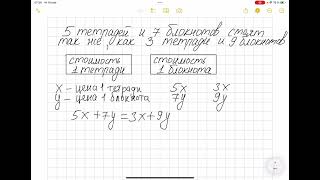 5 тетрадей и 7 блокнотов стоят
так же, как 3 тетради и 9 блокнотов
стоимость 1 тетради
стоимость 1 блокнота
x – цена 1 тетради 5x 3x
y – цена 1 блокнота 7y 9y
5x + 7y = 3x + 9y